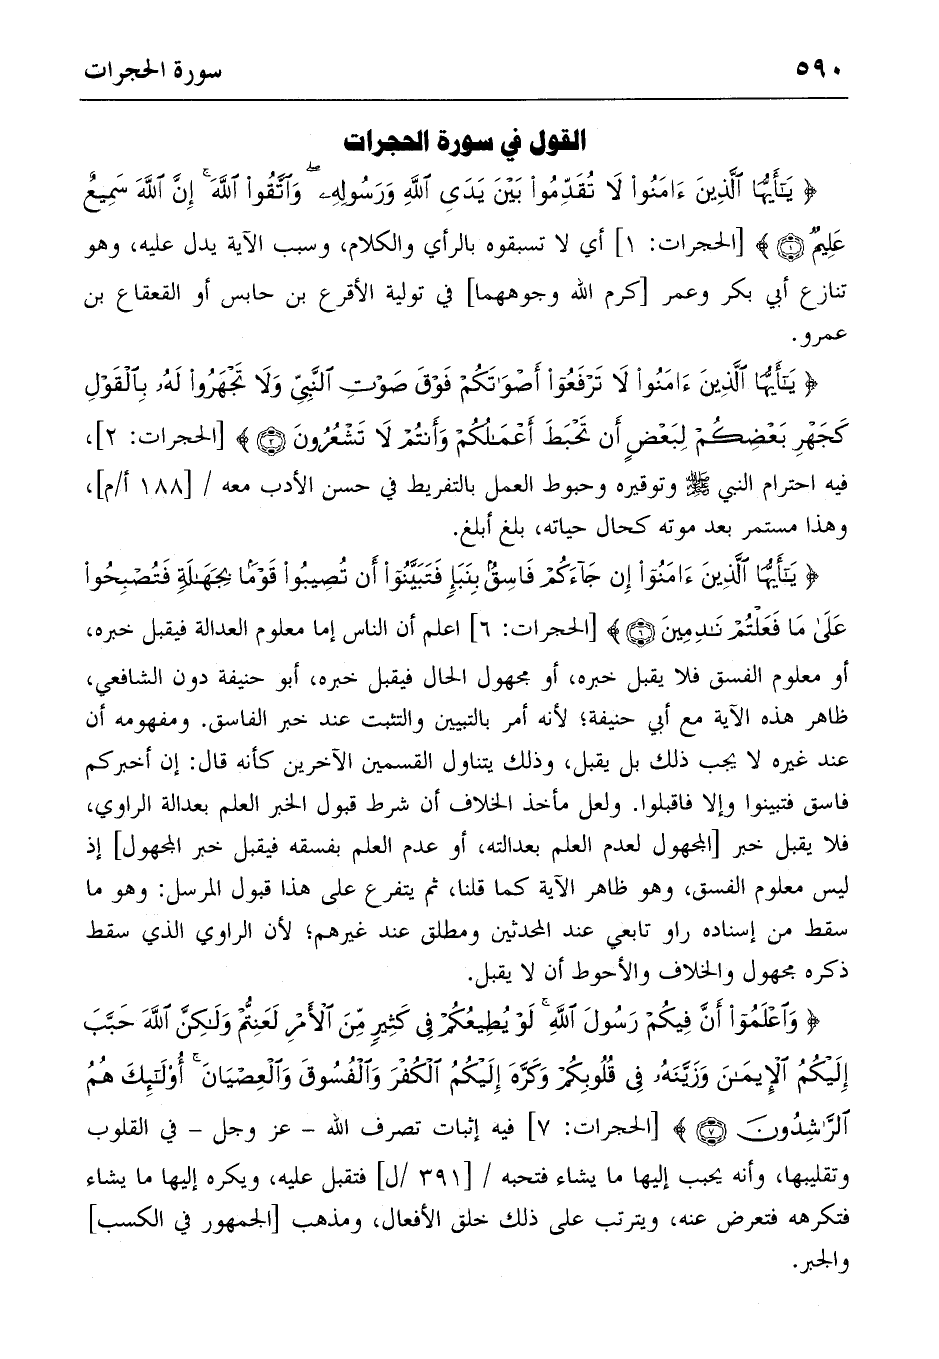 ٥٩٠ سورة الحجرات
القول في سورة الحجرات
﴿ يَٰٓأَيُّهَا ٱلَّذِينَ ءَامَنُوا۟ لَا تُقَدِّمُوا۟ بَيْنَ يَدَىِ ٱللَّهِ وَرَسُولِهِۦ ۖ وَٱتَّقُوا۟ ٱللَّهَ ۚ إِنَّ ٱللَّهَ سَمِيعٌ
عَلِيمٌ ١ ﴾ [الحجرات: ١] أي لا تسبقوه بالرأي والكلام، وسبب الآية يدل عليه، وهو
تنازع أبي بكر وعمر [كرم الله وجوههما] في تولية الأقرع بن حابس أو القعقاع بن
عمرو.
﴿ يَٰٓأَيُّهَا ٱلَّذِينَ ءَامَنُوا۟ لَا تَرْفَعُوٓا۟ أَصْوَٰتَكُمْ فَوْقَ صَوْتِ ٱلنَّبِىِّ وَلَا تَجْهَرُوا۟ لَهُۥ بِٱلْقَوْلِ
كَجَهْرِ بَعْضِكُمْ لِبَعْضٍ أَن تَحْبَطَ أَعْمَٰلُكُمْ وَأَنتُمْ لَا تَشْعُرُونَ ٢ ﴾ [الحجرات: ٢]،
فيه احترام النبي ﷺ وتوقيره وحبوط العمل بالتفريط في حسن الأدب معه / [١٨٨ أ/م]،
وهذا مستمر بعد موته كحال حياته، بلغ أبلغ.
﴿ يَٰٓأَيُّهَا ٱلَّذِينَ ءَامَنُوٓا۟ إِن جَآءَكُمْ فَاسِقٌۢ بِنَبَإٍ فَتَبَيَّنُوٓا۟ أَن تُصِيبُوا۟ قَوْمًۢا بِجَهَٰلَةٍ فَتُصْبِحُوا۟
عَلَىٰ مَا فَعَلْتُمْ نَٰدِمِينَ ٦ ﴾ [الحجرات: ٦] اعلم أن الناس إما معلوم العدالة فيقبل خبره،
أو معلوم الفسق فلا يقبل خبره، أو مجهول الحال فيقبل خبره، أبو حنيفة دون الشافعي،
ظاهر هذه الآية مع أبي حنيفة؛ لأنه أمر بالتبيين والتثبت عند خبر الفاسق. ومفهومه أن
عند غيره لا يجب ذلك بل يقبل، وذلك يتناول القسمين الآخرين كأنه قال: إن أخبركم
فاسق فتبينوا وإلا فاقبلوا. ولعل مأخذ الخلاف أن شرط قبول الخبر العلم بعدالة الراوي،
فلا يقبل خبر [المجهول لعدم العلم بعدالته، أو عدم العلم بفسقه فيقبل خبر المجهول] إذ
ليس معلوم الفسق، وهو ظاهر الآية كما قلنا، ثم يتفرع على هذا قبول المرسل: وهو ما
سقط من إسناده راو تابعي عند المحدثين ومطلق عند غيرهم؛ لأن الراوي الذي سقط
ذكره مجهول والخلاف والأحوط أن لا يقبل.
﴿ وَٱعْلَمُوٓا۟ أَنَّ فِيكُمْ رَسُولَ ٱللَّهِ ۚ لَوْ يُطِيعُكُمْ فِى كَثِيرٍ مِّنَ ٱلْأَمْرِ لَعَنِتُّمْ وَلَٰكِنَّ ٱللَّهَ حَبَّبَ
إِلَيْكُمُ ٱلْإِيمَٰنَ وَزَيَّنَهُۥ فِى قُلُوبِكُمْ وَكَرَّهَ إِلَيْكُمُ ٱلْكُفْرَ وَٱلْفُسُوقَ وَٱلْعِصْيَانَ ۚ أُو۟لَٰٓئِكَ هُمُ
ٱلرَّٰشِدُونَ ٧ ﴾ [الحجرات: ٧] فيه إثبات تصرف الله - عز وجل - في القلوب
وتقليبها، وأنه يحبب إليها ما يشاء فتحبه / [٣٩١ /ل] فتقبل عليه، ويكره إليها ما يشاء
فتكرهه فتعرض عنه، ويترتب على ذلك خلق الأفعال، ومذهب [الجمهور في الكسب]
والجبر.